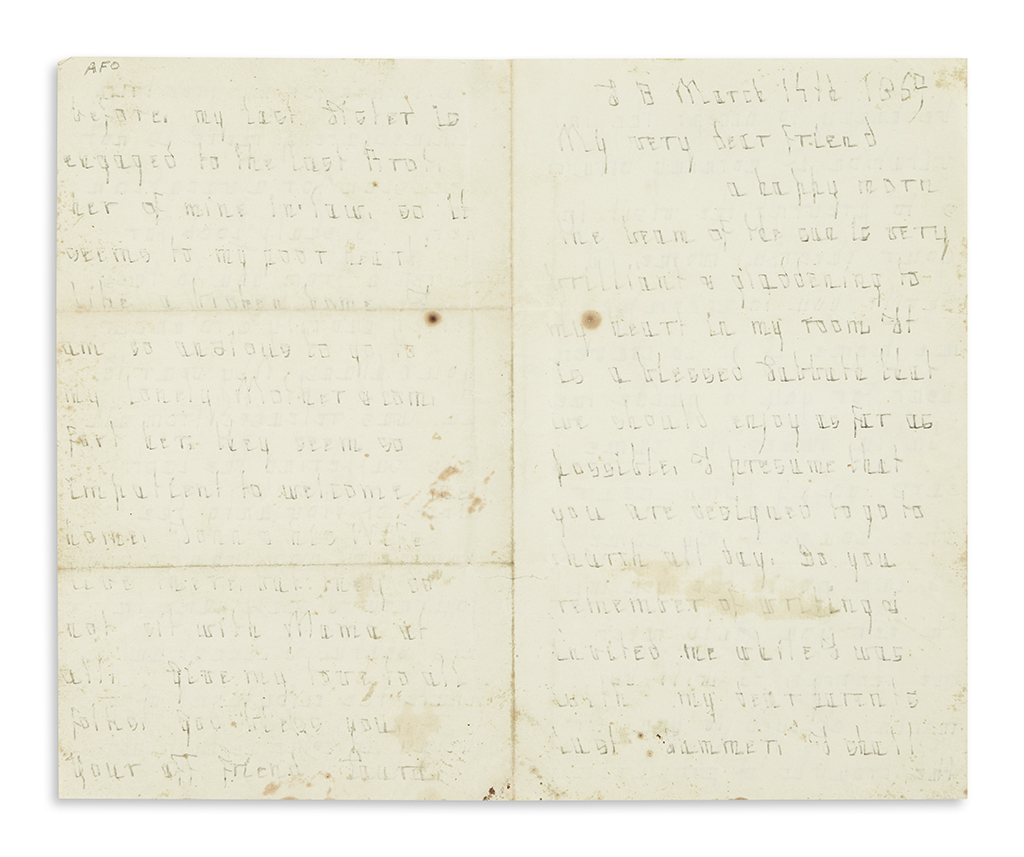 S B March 14th
My very dear friend
a happy morn
the beam of the sun is very
brilliant & gladdening to
my heart in my room It
is a blessed Sabbath that
we should enjoy as far as
possible. I presume that
you are designed to go to
church all day. Do you
remember of writing &
invited me while I was
with my dear parents
last Summer. I shall
AFO
before. my last Sister is
engaged to the last Brot
her of mine in-law. so it
seems to my poor heart
like a broken home. I
am so anxious to go to
my lonely Mother & com
fort her. they seem so
impatient to welcome
home. John & his Wife
live there. but they do
not sit with Mama at
all. give my love to all
folks. god bless you
your aff friend Laura